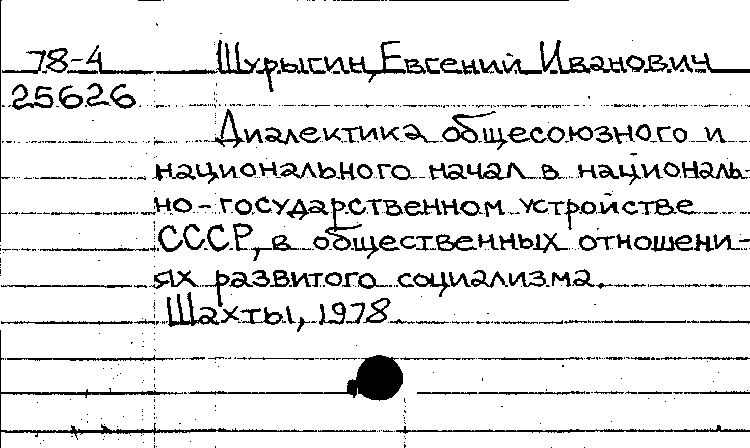 78-4 Шурыгин, Евгений Иванович
25626
Диалектика общесоюзного и
национального начал в националь-
но-государственном устройстве
СССР, в общественных отношени-
ях развитого социализма.
Шахты, 1978.